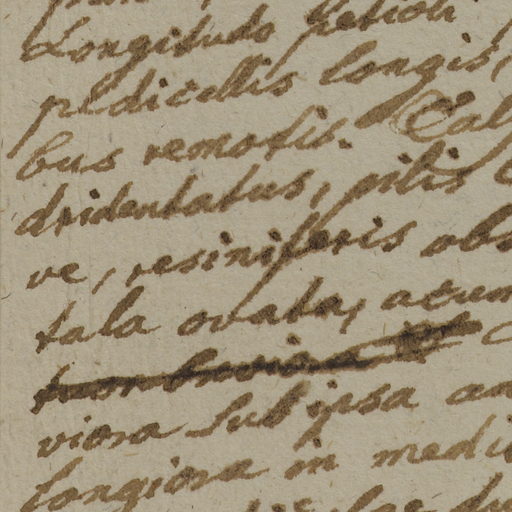 Longitudo petioli
pedicellis longis,
bus remotis. Cal
dridentatus, pilis
ve, resiniferis obs
tala ovata, acum
viora sub ipsa an
longiora in medi